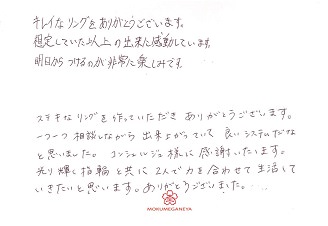 キレイなリングをありがとうございます。
想定していた以上の出来に感動しています。
明日からつけるのが非常に楽しみです。
ステキなリングを作っていただきありがとうございます。
一つ一つ相談しながら出来上がっていて良いシステムだな
と思いました。コンシェルジュ様に感謝いたします。
光り輝く指輪と共に2人で力を合わせて生活して
いきたいと思います。ありがとうございました。
MOKUMEGANEYA